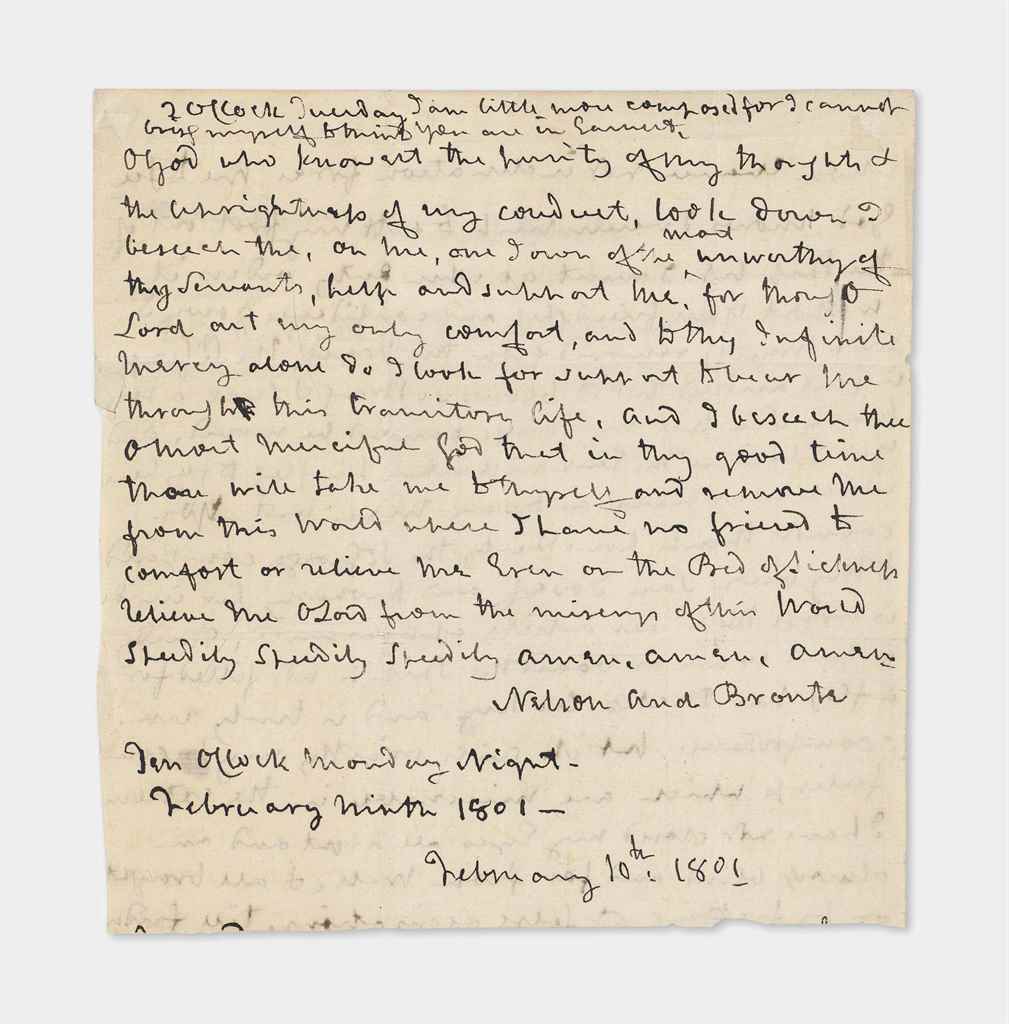 2 OClock Tuesday I am little more composed for I cannot
bring myself to think you are in Earnest.
O God who knowest the purity of my thoughts &
the uprightness of my conduct, look down I
most
beseech the, on me, one I own of the unworthy of
thy Servants, help and support me, for thou O
Lord art my only comfort, and to thy Infinite
Mercy alone do I look for support to bear me
through this transitory life, and I beseech thee
O most Merciful God that in thy good time
thou will take me to thyself and remove me
from this World where I have no friend to
comfort or relieve me Even on the Bed of Sickness
relieve me O Lord from the miserys of this World
Speedily Speedily Speedily amen, amen, amen
Nelson and Bronte
Ten OClock Monday Night -
February Ninth 1801 -
February 10th: 1801